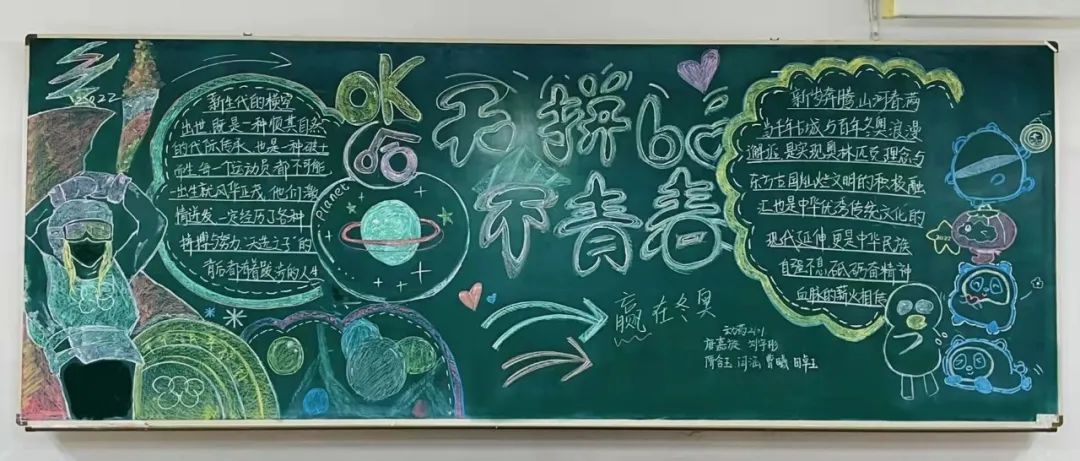 2022
新生代的横空
出世既是一种顺其自然
的代际传承也是一种破土
而生每一个运动员都不可能
一出生就风华正茂他们激
情迸发一定经历了各种
拼搏与努力"天选之子"的
背后都有着励志的人生
OK
哈
Planet
无拼bo
不青春
赢在冬奥
新岁奔腾山河春满
当千年古城与百年冬奥浪漫
邂逅是实现奥林匹克理念与
东方古国灿烂文明的积极融
汇也是中华优秀传统文化的
现代延伸更是中华民族
自强不息砥砺奋精神
血脉的薪火相传